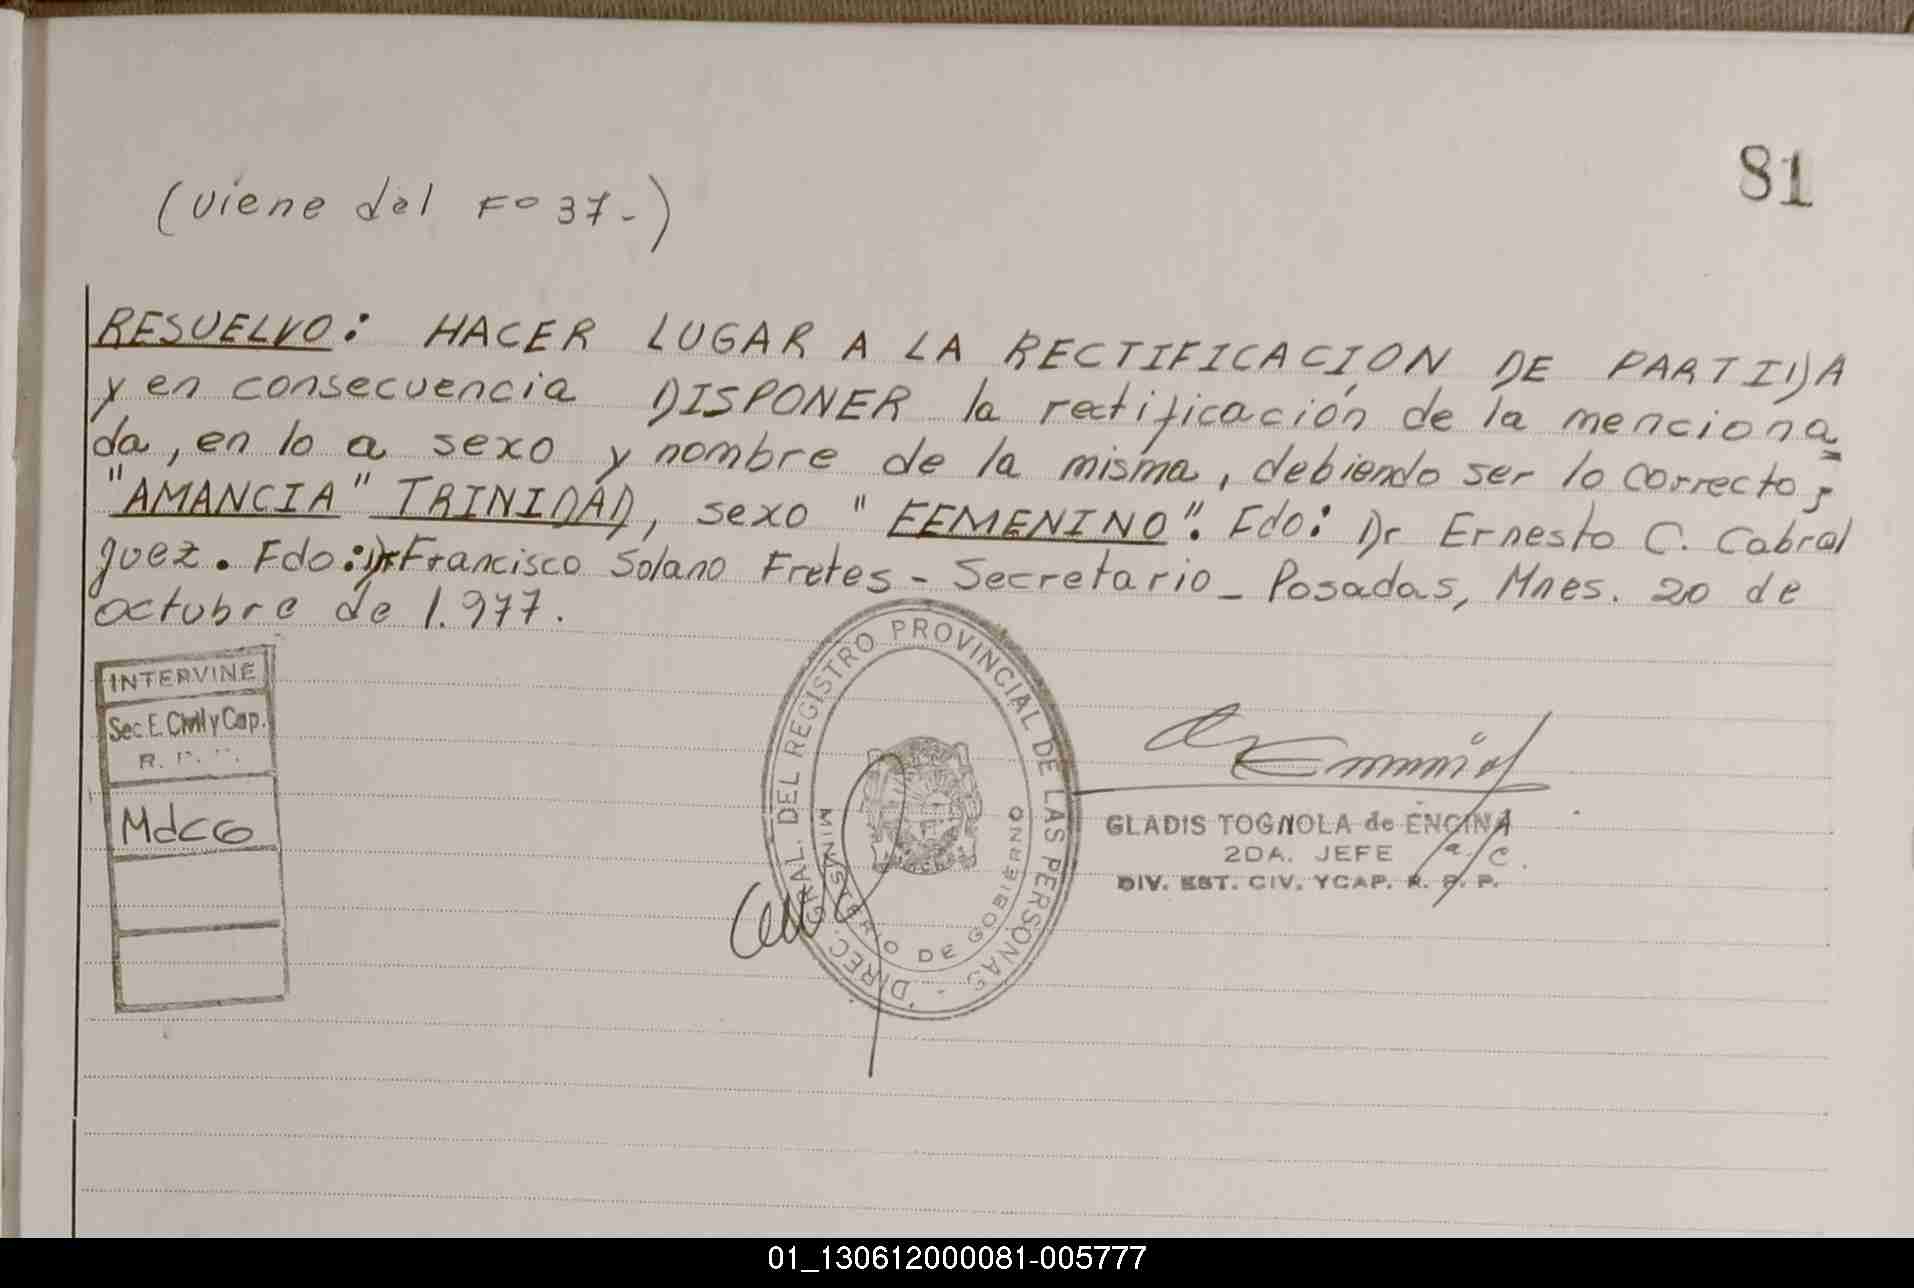 81
(viene del Fº 37-)
RESUELVO: HACER LUGAR A LA RECTIFICACIÓN DE PARTIDA
y en consecuencia DISPONER la rectificación de la menciona=
da, en lo a sexo y nombre de la misma, debiendo ser lo correcto;
"AMANCIA" TRINIDAD, sexo "FEMENINO". Fdo: Dr Ernesto C. Cabral
juez. Fdo: Dr Francisco Solano Fretes - Secretario - Posadas, Mnes. 20 de
octubre de 1.977.
INTERVINE
Sec E. Civil y Cap.
R. P. P.
MdCG
DIREC. GRAL. DEL REGISTRO PROVINCIAL DE LAS PERSONAS -
MINISTERIO DE GOBIERNO
GLADIS TOGNOLA de ENCINA
2DA. JEFE a/c.
DIV. EST. CIV. YCAP. R. P. P.
01_130612000081-005777